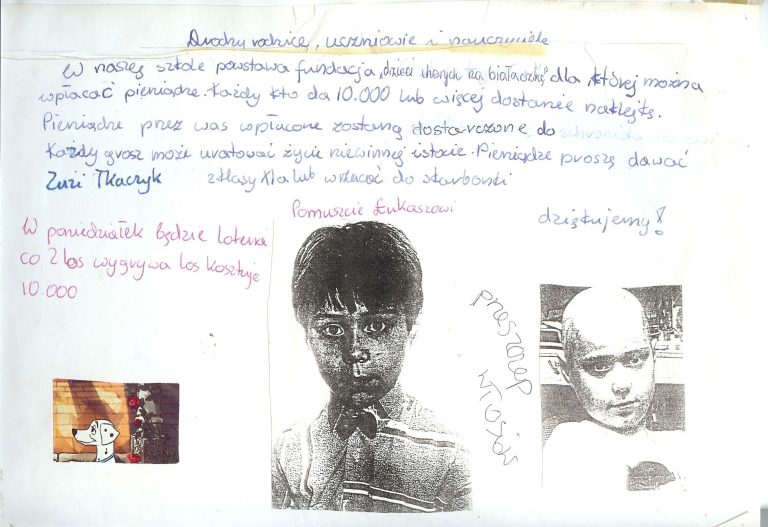 Drodzy rodzice, uczniowie i nauczyciele
W naszej szkole powstawa fundacja "dzieci chorych na białaczkę" dla której można
wpłacać pieniądze. Każdy kto da 10.000 lub więcej dostanie naklejkę.
Pieniądze przez was wpłacone zostaną dostarczone do schroniska dla
Każdy grosz może uratować życie niewinnej istocie. Pieniądze proszę dawać
Zuzi Tkaczyk z klasy XIa lub wrzucać do skarbonki
Pomuszcie Łukaszowi
dziękujemy!
W poniedziałek będzie loteria
co 2 los wygrywa los kosztuje
10.000
przeszczep
włosów